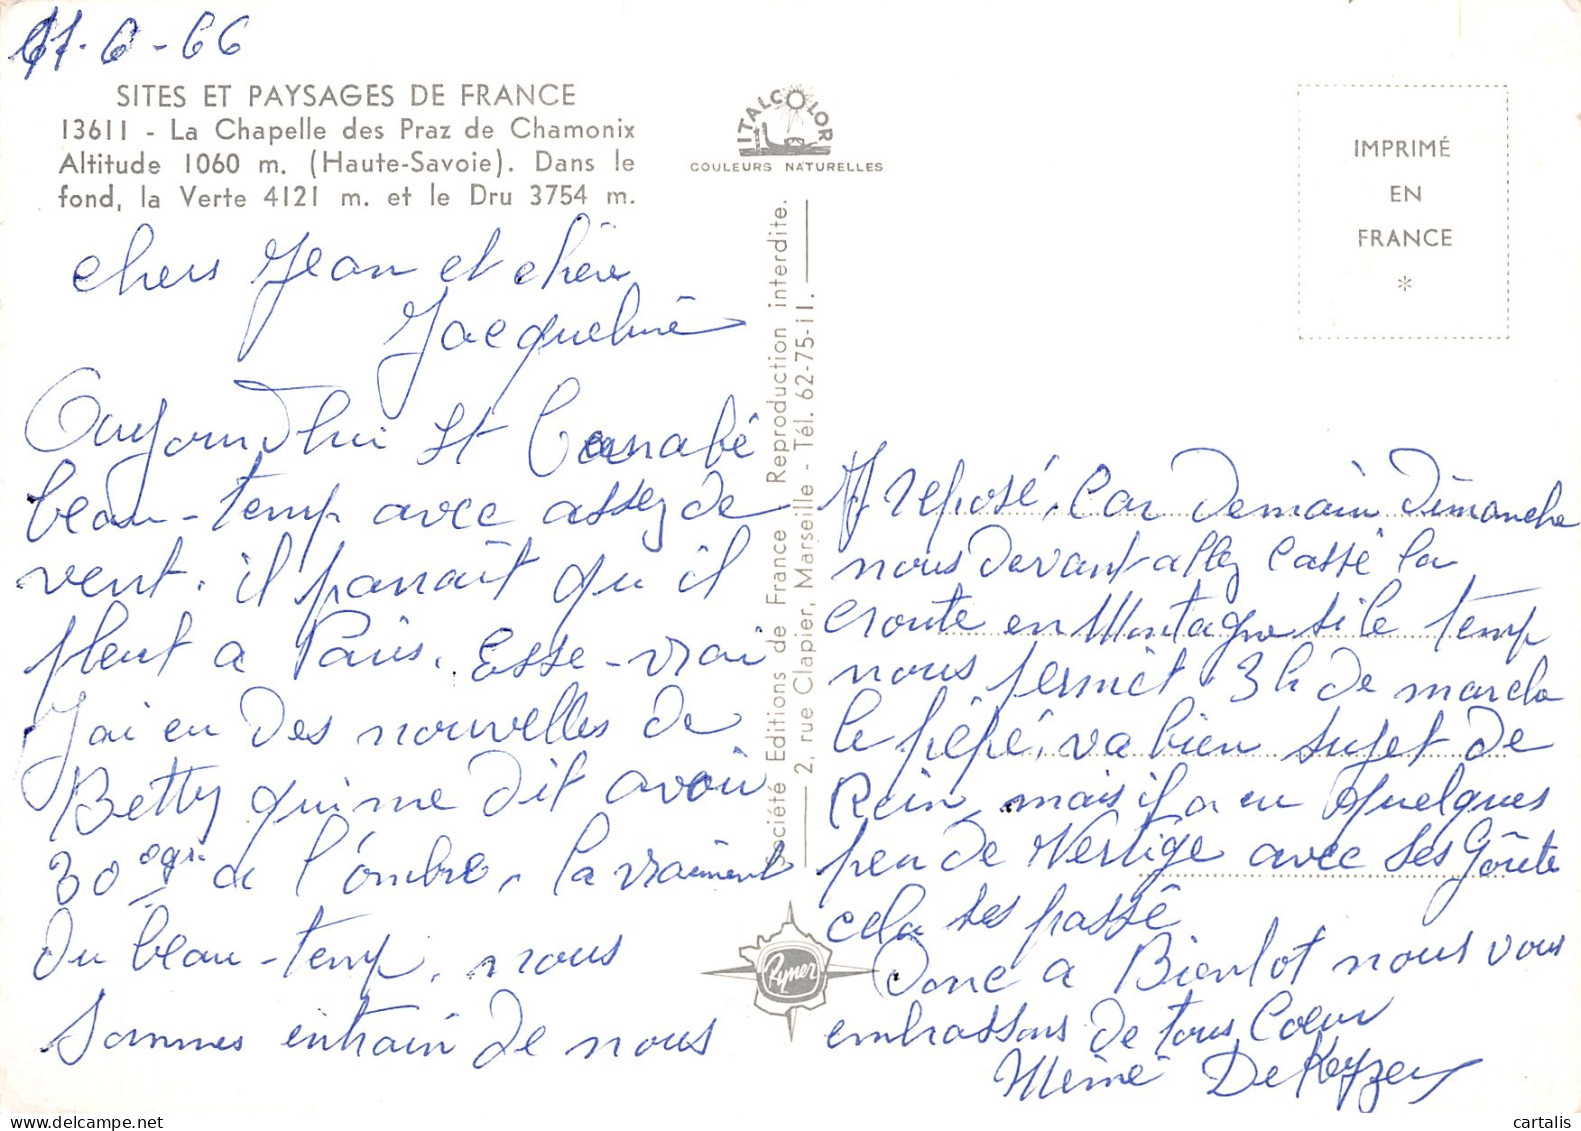 11-6-66
SITES ET PAYSAGES DE FRANCE
13611 - La Chapelle des Praz de Chamonix
Altitude 1060 m. (Haute-Savoie). Dans le
fond, la Verte 4121 m. et le Dru 3754 m.
chers Jean et chère
Jacqueline
Aujourd'hui St Barnabé
beau-temp avec assez de
vent. il parrait qu il
pleut a Paris. Esse-vrai
J'ai eu des nouvelles de
Betty qui me dit avoir
30 degr. a l'ombre, la vraiment
du beau-temp, nous
sommes entrain de nous
ITALCOLOR
COULEURS NATURELLES
Société Editions de France Reproduction interdite.
2, rue Clapier, Marseille - Tél. 62-75-11.
Rymer
IMPRIMÉ
EN
FRANCE
*
reposé, Car demain dimanche
nous devant allez cassé la
croute en Montagne si le temp
nous permet 3h de marche
le pépé, va bien sujet de
Rein, mais il a eu quelques
peu de Vertige avec ses Goûte
cela ses passé
Donc a Bientot nous vous
embrassons de tous Coeur
Mémé De Keyzer
cartalis